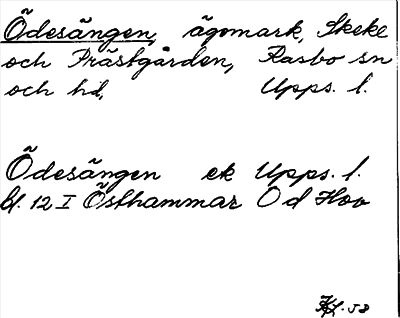 Ödesängen, ägomark, Skeke
och Prästgården, Rasbo sn
och hd, Upps. l.
Ödesängen ek Upps. l.
bl. 12 I Östhammar Od Hov